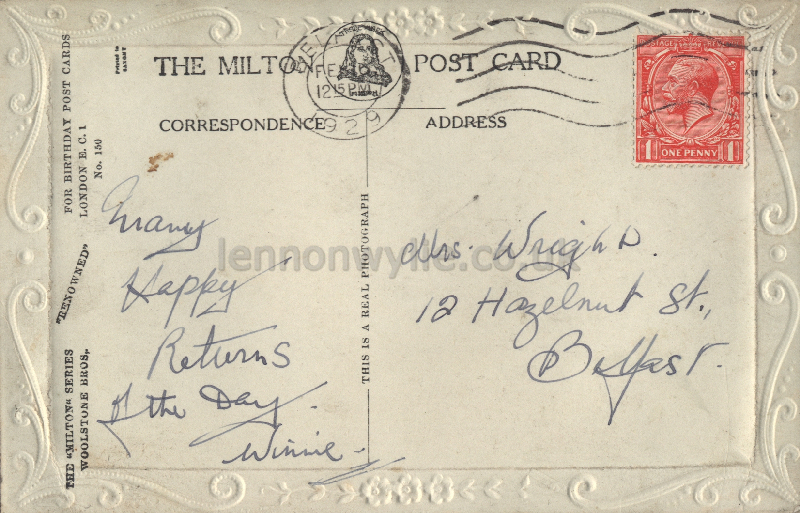 THE MILTON POST CARD
BELFAST
12 15 PM
1929
POSTAGE REVENUE
ONE PENNY
1 1
CORRESPONDENCE
ADDRESS
Many
Happy
Returns
of the Day.
Winnie
Mrs. Wright.
12 Hazelnut St.,
Belfast.
THIS IS A REAL PHOTOGRAPH
FOR BIRTHDAY POST CARDS
LONDON E.C. 1
No. 150
"RENOWNED"
THE "MILTON" SERIES
WOOLSTONE BROS.,
Printed in
lennonwylie.co.uk